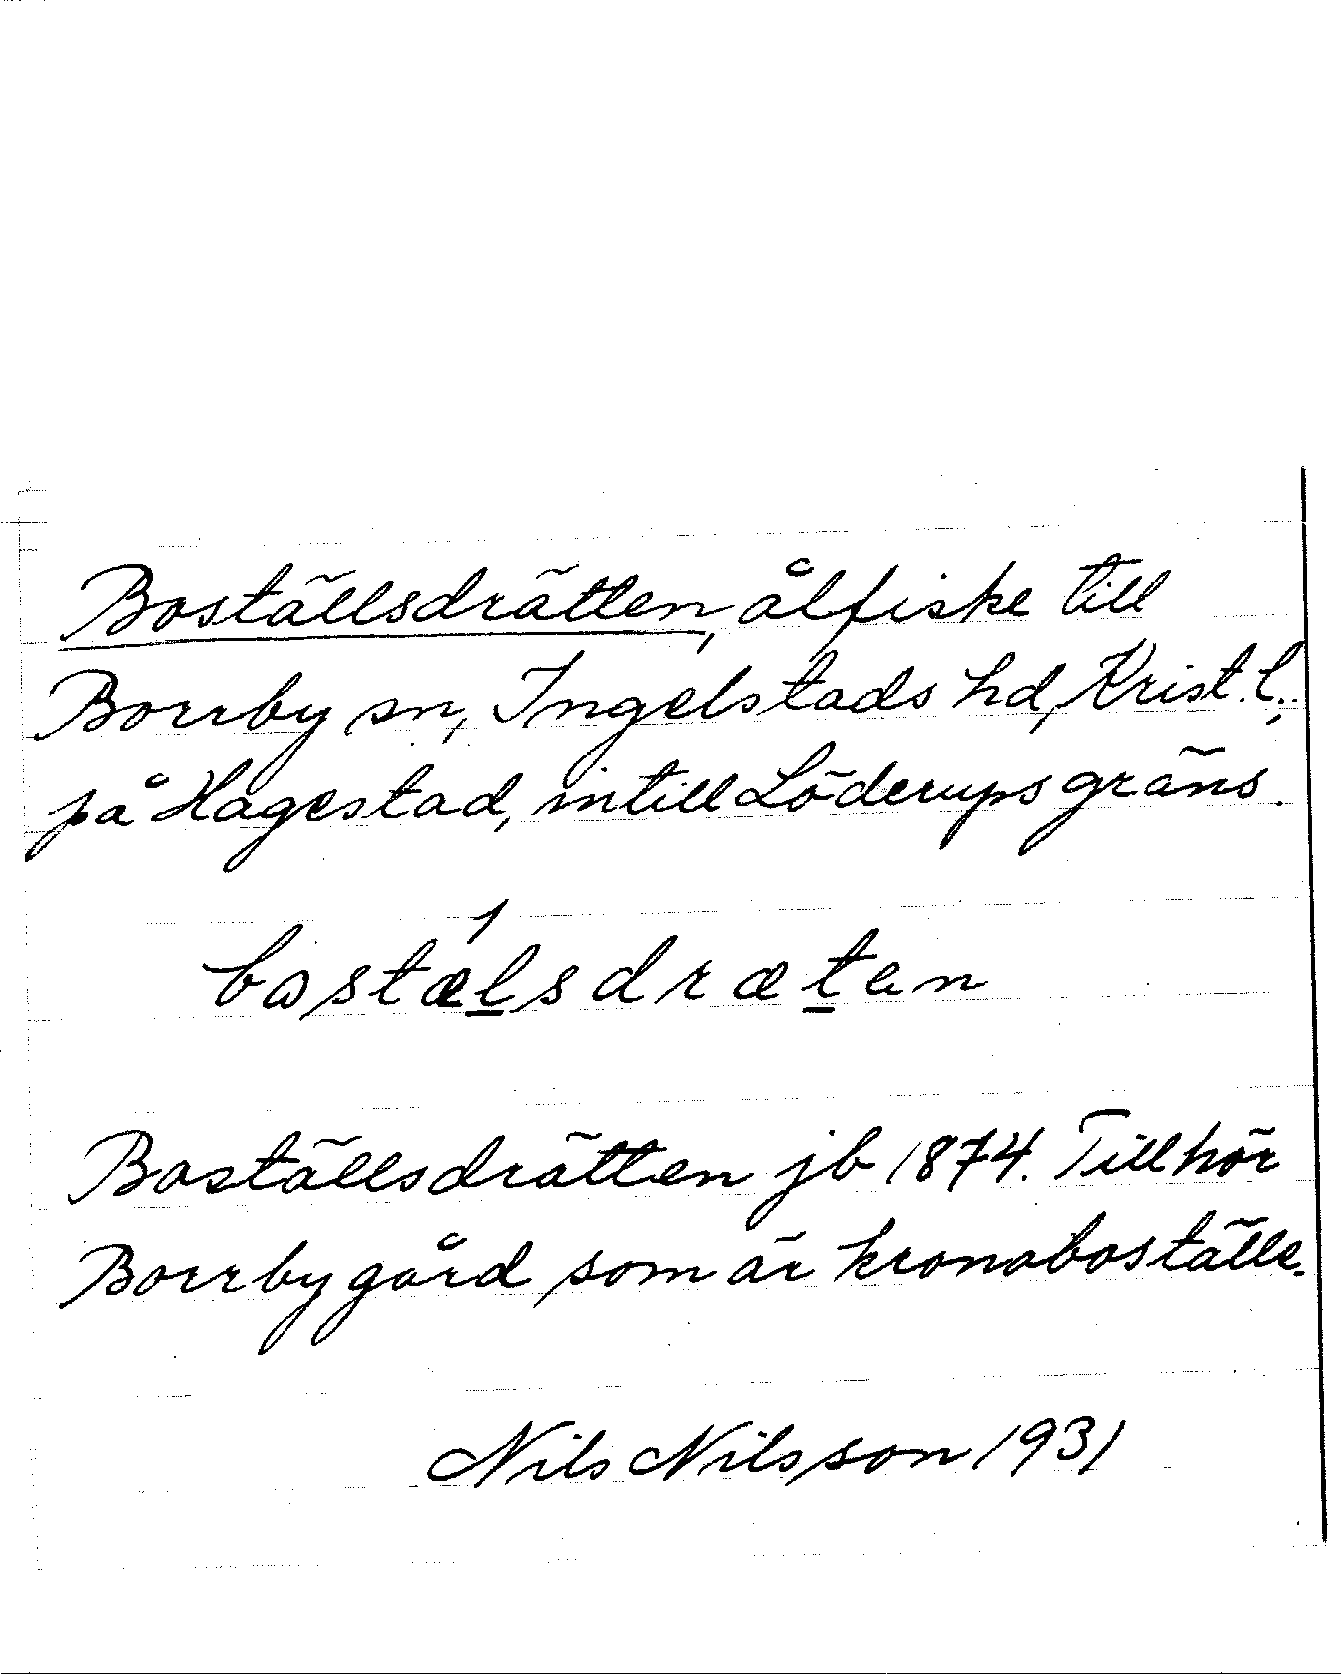 Boställsdrätten, ålfiske till
Borrby sn, Ingelstads hd, Krist. l.,
på Hagestad, intill Löderups gräns.
bostǽl̲sdræt̲en
Boställsdrätten jb 1874. Tillhör
Borrby gård som är kronoboställe.
Nils Nilsson 1931